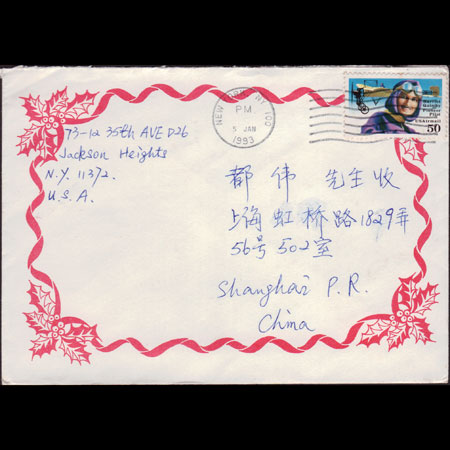 73-12 35th AVE D26
Jackson Heights
N.Y. 11372.
U.S.A.
NEW YORK NY 100
PM
5 JAN
1993
Harriet
Quimby
Pioneer
Pilot
USAirmail
50
都 伟 先生 收
上海 虹 桥 路 1829弄
56号 502室
Shanghai P.R.
China